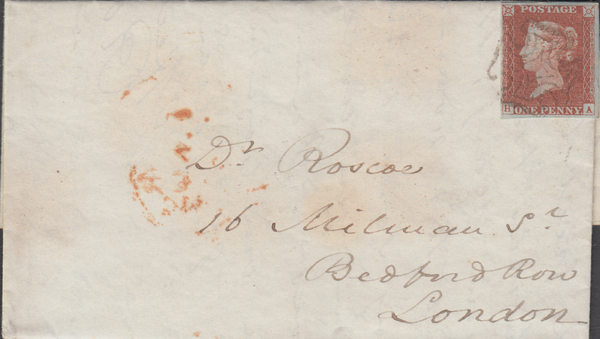 POSTAGE
ONE PENNY
A
Dr Roscoe
16 Milman St
Bedford Row
London